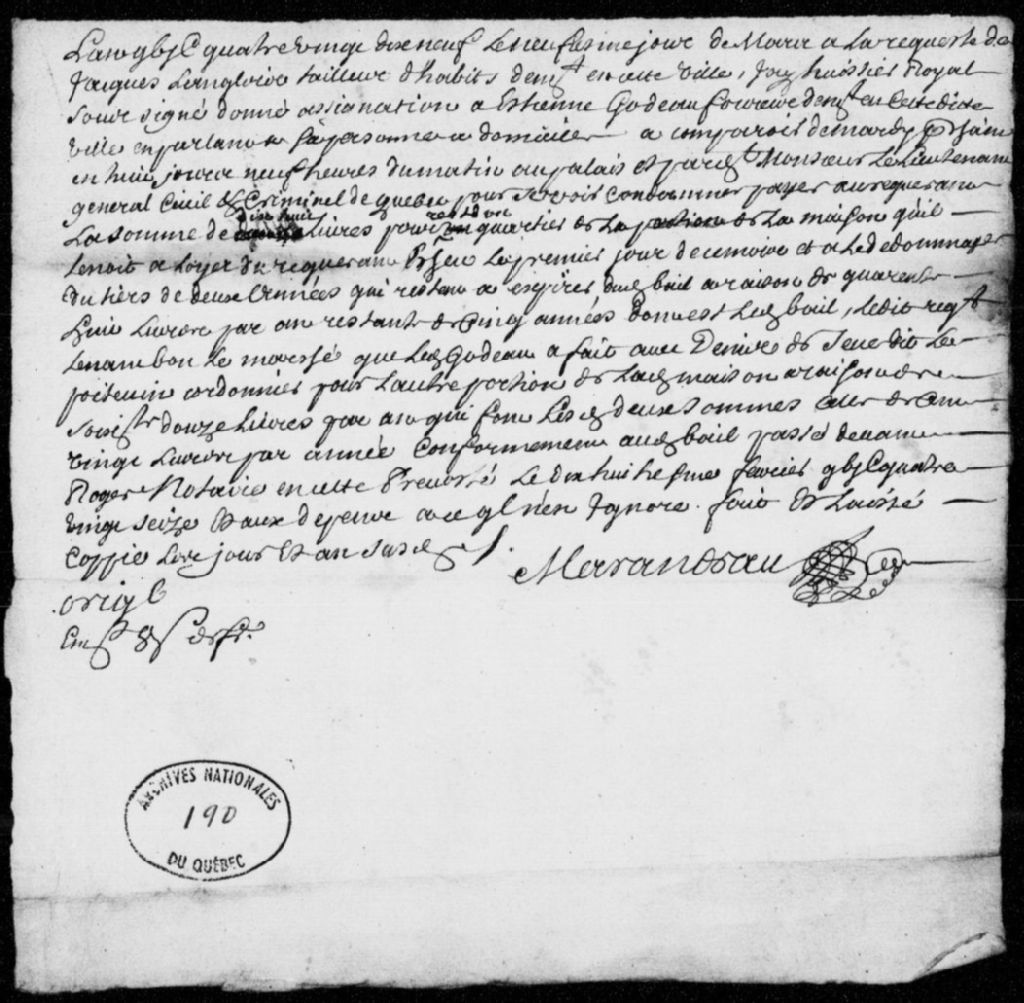 Lan gbjC quatre vingt dix neuf le neufiesme jour de Mars a la requeste de
Jacques Langlois tailleur dhabits demt en cette ville, Jay huissier Royal
sous signé donné assignation a Estienne Godeau demt en cette dicte
ville en parlant a sa personne a domicile a comparoir de mardy
en huit jours neuf heures du matin au palais et pardt Monsieur le Lieutenant
general Civil & Criminel de quebec pour se voir condamner payer au requerant
La somme de dix huit Livres pour quartier de la portion de la maison quil
tenoit a loyer du requerant le premier jour de ce mois et a le dedommager
du tiers de deux années qui restent a expirer dud bail a raison de quarente
huit Livres par an restants de cinq années dont est led bail, ledit reqt
tenant bon le marché que led Godeau a fait avec Denis de Jeue dit le
poitevin cordonnier pour lautre portion de lad maison a raison de
soixte douze Livres par an qui font lesd deux sommes celle de cent
vingt Livres par année Conformement aud bail passé devant
Roger Notaire en cette Prevosté le dix huitiesme fevrier gbjC quatre
vingt seize Et aux depens a ce ql nen Ignore. fait & Laissé
Coppie les jour Et an susd
Marandeau
origl
ARCHIVES NATIONALES
190
DU QUÉBEC